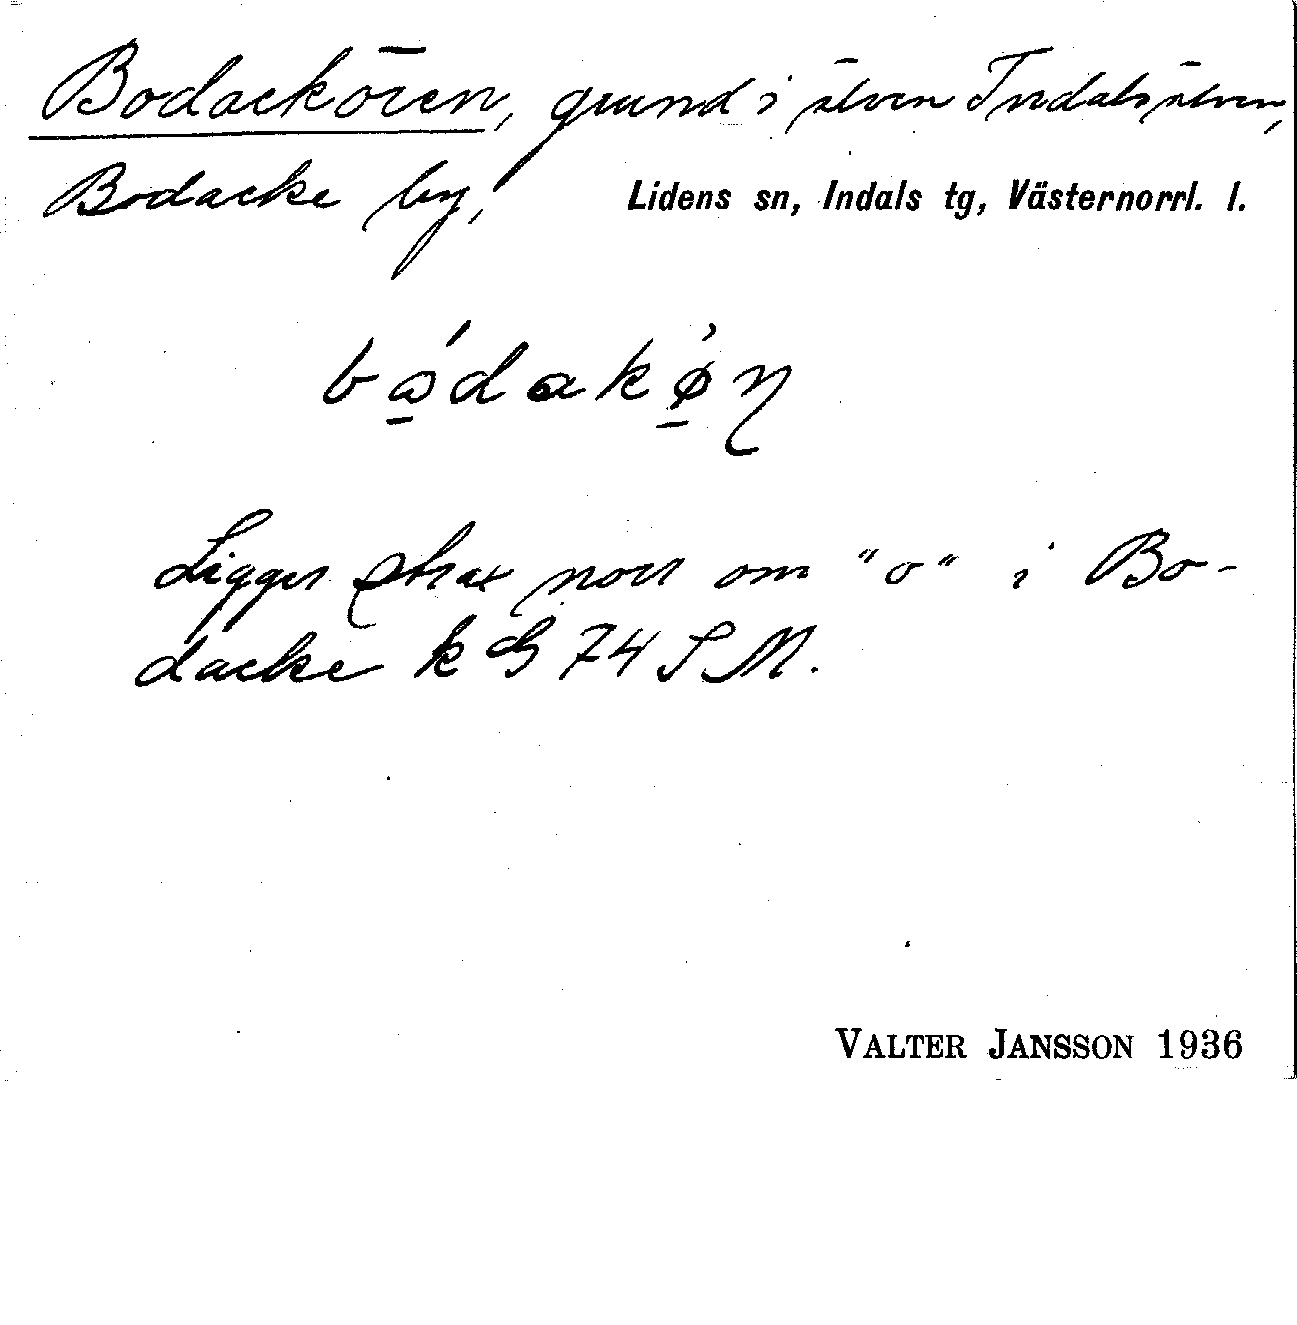 Bodackören, grund i älven Indalsälven,
Bodacke by, Lidens sn, Indals tg, Västernorrl. l.
Ligger strax norr om "o" i Bo-
dacke k G 74 S M.
VALTER JANSSON 1936